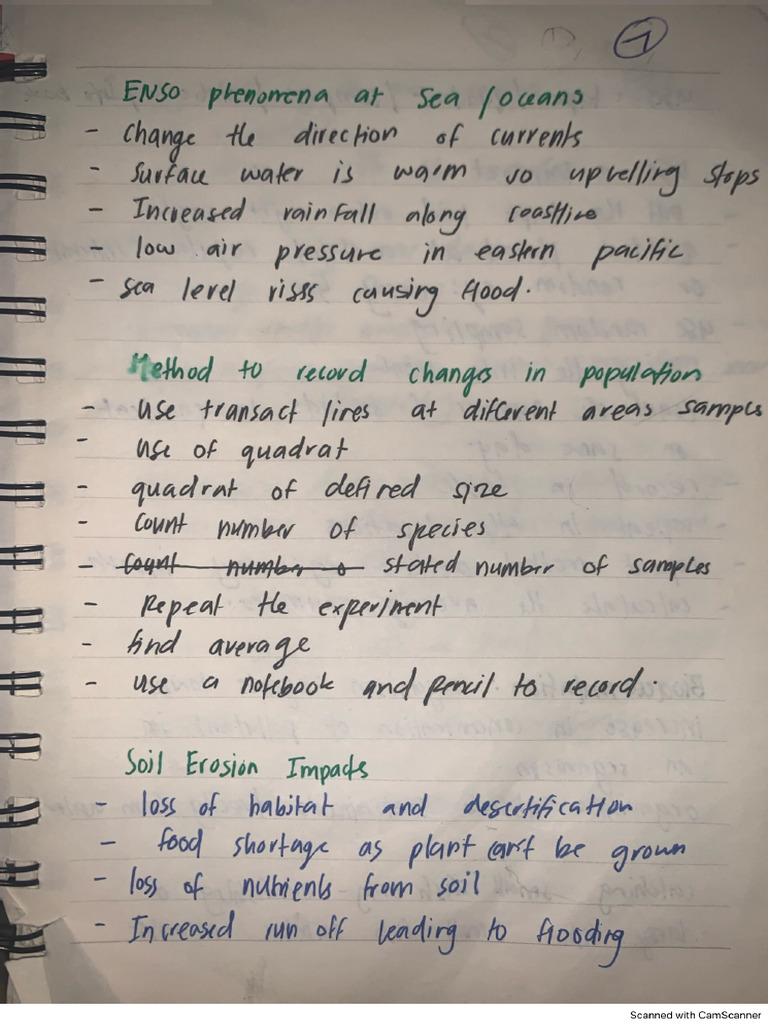 1
ENSO phenomena at Sea / oceans
- change the direction of currents
- surface water is warm so upwelling stops
- Increased rainfall along coastline
- low air pressure in eastern pacific
- sea level rises causing flood.
Method to record changes in population
- use transact lines at different areas sample
- use of quadrat
- quadrat of defined size
- count number of species
- count number o stated number of samples
- Repeat the experiment
- find average
- use a notebook and pencil to record.
Soil Erosion Impacts
- loss of habitat and desertification
- food shortage as plant can't be grown
- loss of nutrients from soil
- Increased run off leading to flooding
Scanned with CamScanner